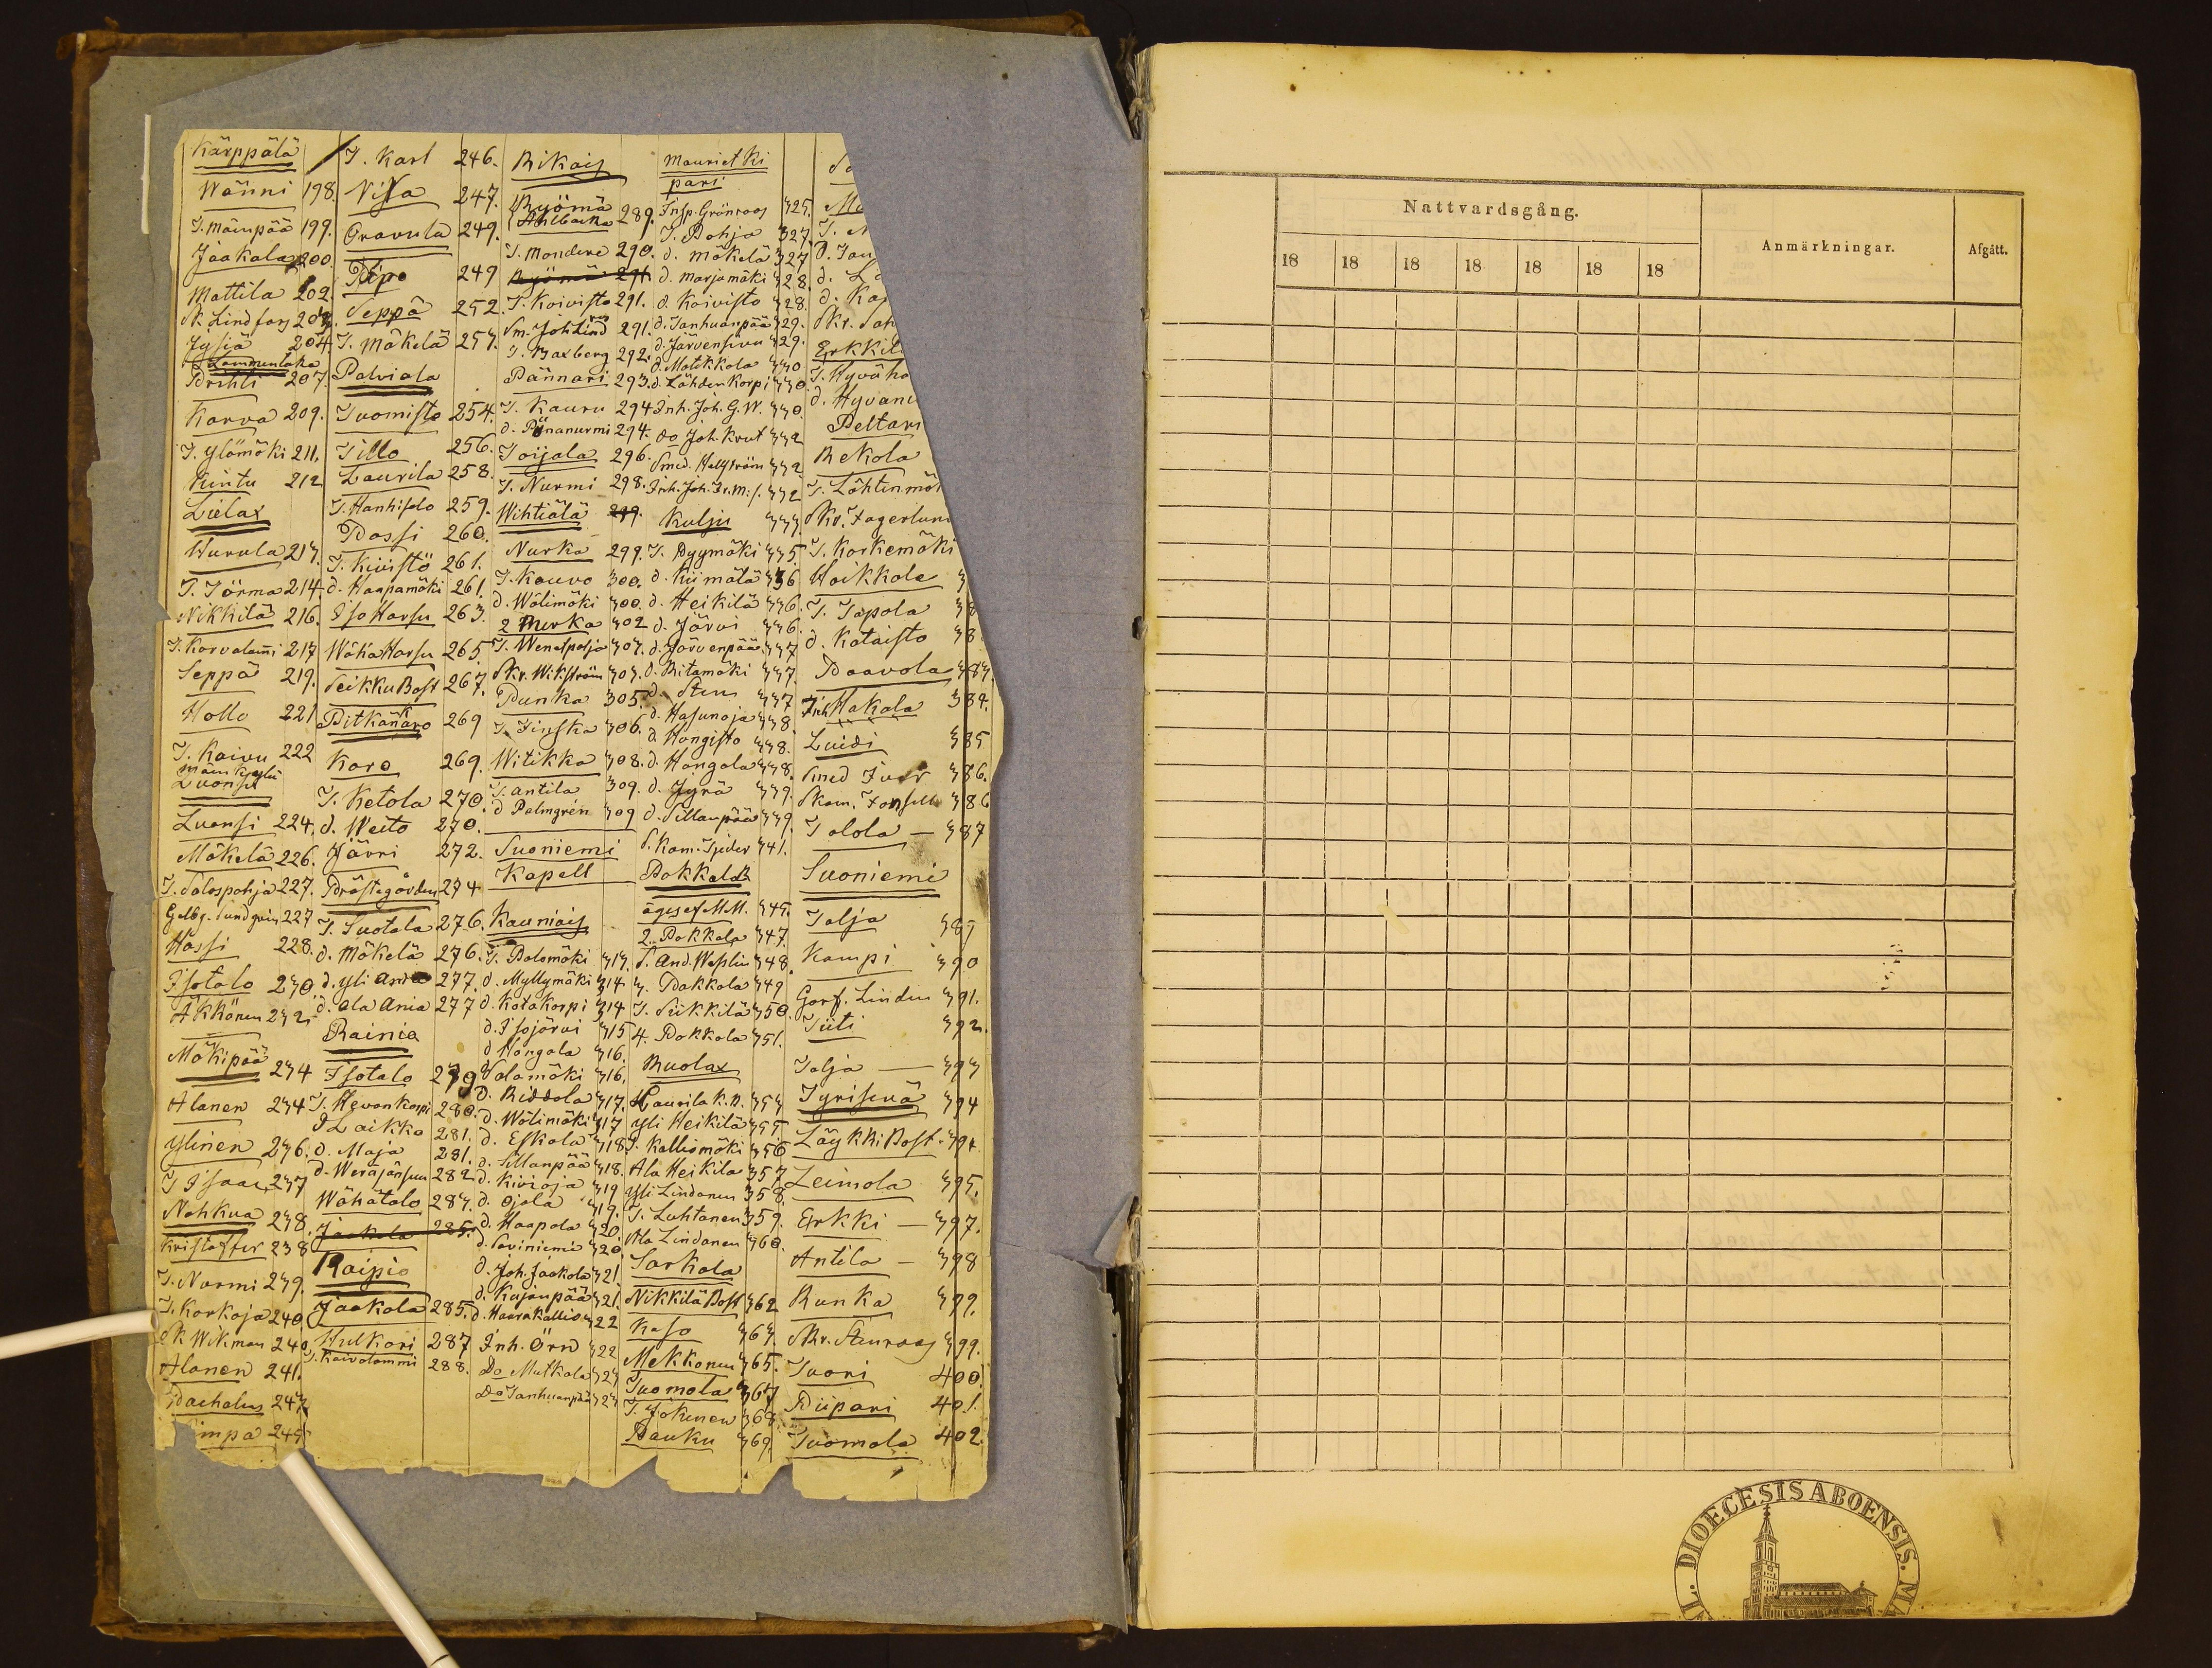 Kärppälä
Wänni 198.
T. Mäenpää 199.
Jaakala 200
Mattila 202.
Jysiä 204.
Prihti 207.
Karva 209.
T. Ylömäki 211.
Kintu 212
Lielax
Hurula 213.
T. Törmä 214
Nikkilä 216.
T. Korvalam̄i 217
Seppä 219.
Hollo 221
T. Koivu 222
Luonsi 224.
Mäkelä 226.
T. Palospohja 227.
Hossi 228.
Isotalo 230.
Äkkönen 232.
Mäkipää 234
Alanen 234
Ylinen 236.
T Isaac 237
Nohkua 238.
Kristoffer 238
T. Nurmi 239.
T. Korkoja 240
Sk Wikman 240
Alanen 241.
T. Karl 246.
Nissa 247.
Oravula 249.
Pepo 249
Seppä 252
T. Mäkelä 253.
Palviala
Tuomisto 254.
Tillo 256.
Laurila 258.
T. Hanhisalo 259.
Possi 260.
T. Kiiistö 261.
d. Haapamäki 261.
Iso Harsu 263.
Wäha Harsu 265
Seikku Bost. 267.
Pitkänkäro 269
Koro 269.
T. Ketola 270.
d. Weito 270.
Järvi 272.
Prästegården 274
T. Suotala 276.
d. Mäkelä 276.
d. Yli Ania 277.
d. Ala Ania 277
Rainio
Isotalo 279
T. Hevonkorpi 280.
T Laikko 281.
d. Maja 281.
Wähätalo 283.
Jaakola 285.
Raipio
Jaakola 285.
Hulkari 287
T. Koivolammi 288.
Rikais
Ryömä
Ahlbacka 289.
T. Mondere 290.
Ryömä 291.
T. Koivisto 291.
Sm. Joh Lind 291.
T. Baxberg 292.
Pännäri 293.
T. Kauru 294
d. Pänänurmi 294.
Toijala 296.
T. Nurmi 298.
Wihtiälä 299.
Nurka 299.
T. Kauvo 300.
d. Wälimäki 300.
2 Murka 302
T. Wenetpohja 303.
Skr. Wikström 303.
Punka 305.
T. Finska 306.
Witikka 308.
T. Antila 309.
d Palmgrén 309
Suoniemi
Kapell
Kauniais
T. Palomäki 313.
d. Myllymäki 314
d. Kotakorpi 314
d. Isojärvi 315
d Hongola 316.
Salomäki 316.
d. Riddola 317.
d. Wälimäki 317
d. Eskola 318
d. Sillanpää 318.
d. Kivioja 319
d. Ojala 319.
d. Haapala 320.
d. Saviniemi 320.
d. Joh. Jaakola 321
d. Kujanpää 321.
d. Haarakallio 322
Inh. Örn 322
Do Mutkala 323
Do Tanhuanpää 323
Mauriet Ki
pari
Insp. Grönroos 325.
T. Pohja 327
d. Mäkelä 327
d. Marjamäki 328.
d. Koivisto 328.
d. Tanhuanpää 329.
d. Järvensivu 329.
d. Matikkala 330
d. Lähdenkorpi 330.
Inh. Joh. G. W. 330.
do Joh. Krut 332
Smed. Hellström 332
Kulju 333.
T. Pyymäki 335.
d. Kiimälä 336
d. Heikilä 336.
d. Järvi 336.
d. Järvenpää 337
d. Ritamäki 337.
d. Sten 337
d. Hasunoja 338
d Hongisto 338.
d. Hongola 338.
d. Jyrä 339.
d. Sillanpää 339
Pokkala
äges af M.M. 345.
2. Pokkala 347.
3. Pokkala 349
T. Siikkilä 350.
4. Pokkala 351.
Ruolax
Laurila K.N. 353
Yli Heikilä 355
T. Kalliomäki 356
Ala Heikilä 357
Yli Lindanen 358.
T. Luhtanen 359.
Ala Lindanen 360.
Sarkola
Nikkilä Bost 362
Kaso 363.
Mekkonen 365.
Tuomola 367
T. Jokinen 368.
Pauku 369.
Peltari
Rekola
T. Korkemäki
Hoikkola
T. Tapola
d. Kataisto
Paavola 383.
Inh Hakala 384.
Luidi 385
Smed Ivar 386.
Talola — 387
Suoniemi
Talja 389
Kampi 390
Gorf. Linden 391.
Tiiti 392.
Talja — 393
Tyrisevä 394
Läykki Bost. 394
Leimola 395.
Erkki — 397.
Antila — 398
Runka 399.
Skr. Stenroos 399.
Tuori 400.
Piipari 401.
Tuomola 402.
Nattvardsgång.
Anmärkningar.
Afgått.
18 18 18 18 18 18 18
DIOECESIS ABOENSIS.